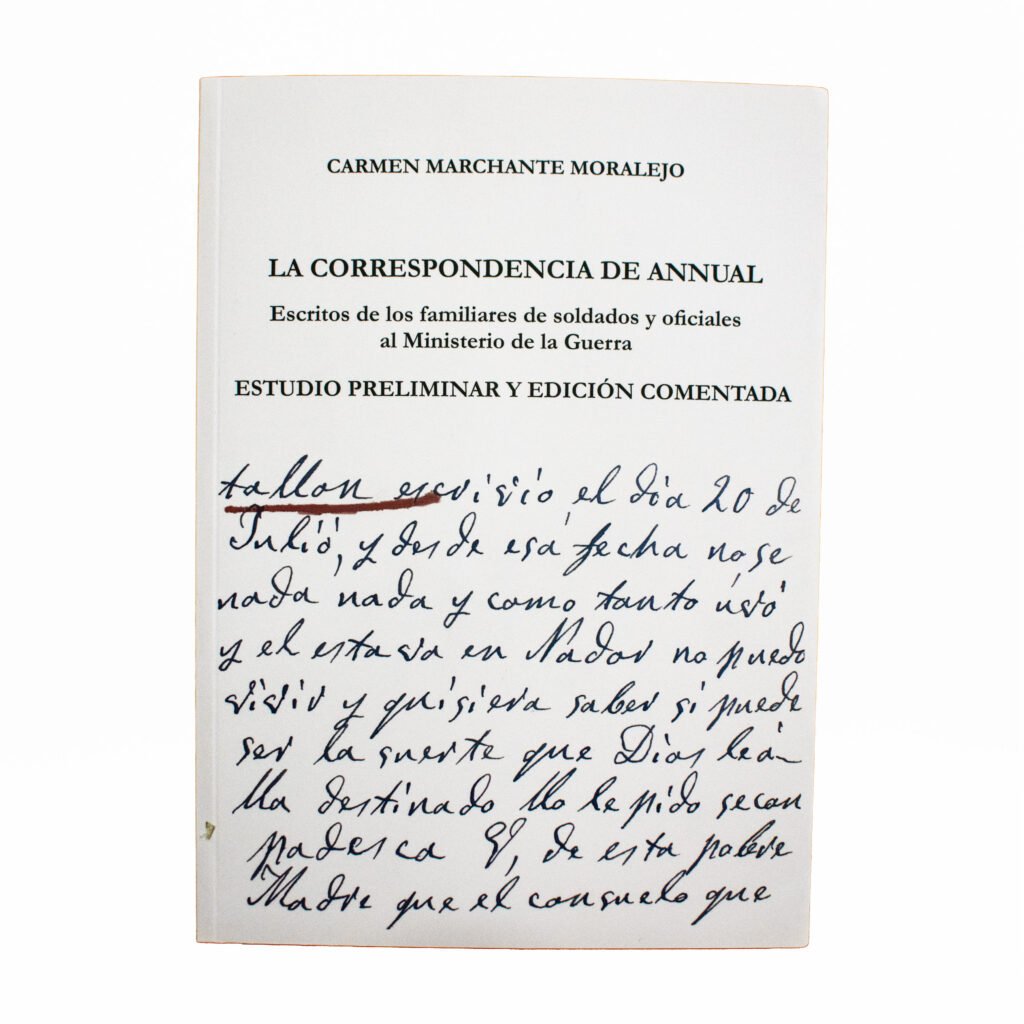 CARMEN MARCHANTE MORALEJO
LA CORRESPONDENCIA DE ANNUAL
Escritos de los familiares de soldados y oficiales
al Ministerio de la Guerra
ESTUDIO PRELIMINAR Y EDICIÓN COMENTADA
tallon escrivió el dia 20 de
Julió, y desde esa fecha no se
nada nada y como tanto úvó
y el estava en Nador no puedo
vivir y quisiera saber si puede
ser la suerte que Dios leá
lla destinado llo le pido se con
padesca V, de esta pobre
Madre que el consuelo que